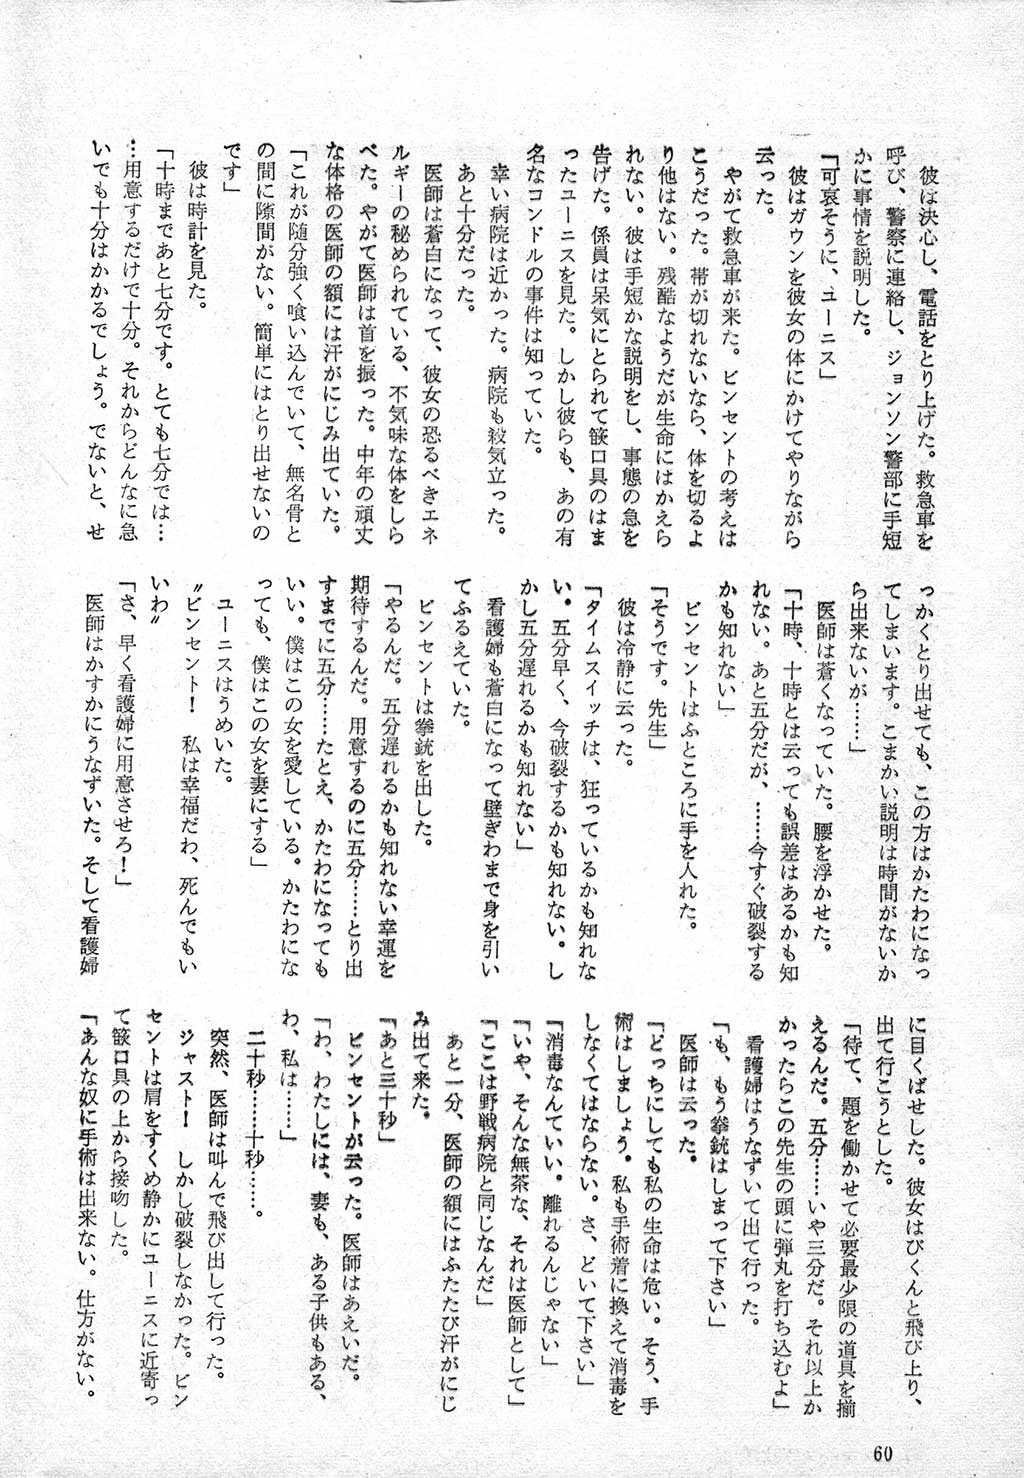 彼は決心し、電話をとり上げた。救急車を
呼び、警察に連絡し、ジョンソン警部に手短
かに事情を説明した。
「可哀そうに、ユーニス」
彼はガウンを彼女の体にかけてやりながら
云った。
やがて救急車が来た。ビンセントの考えは
こうだった。帯が切れないなら、体を切るよ
り他はない。残酷なようだが生命にはかえら
れない。彼は手短かな説明をし、事態の急を
告げた。係員は呆気にとられて篏口具のはま
ったユーニスを見た。しかし彼らも、あの有
名なコンドルの事件は知っていた。
幸い病院は近かった。病院も殺気立った。
あと十分だった。
医師は蒼白になって、彼女の恐るべきエネ
ルギーの秘められている、不気味な体をしら
べた。やがて医師は首を振った。中年の頑丈
な体格の医師の額には汗がにじみ出ていた。
「これが随分強く喰い込んでいて、無名骨と
の間に隙間がない。簡単にはとり出せないの
です」
彼は時計を見た。
「十時まであと七分です。とても七分では…
…用意するだけで十分。それからどんなに急
いでも十分はかかるでしょう。でないと、せ
っかくとり出せても、この方はかたわになっ
てしまいます。こまかい説明は時間がないか
ら出来ないが……」
医師は蒼くなっていた。腰を浮かせた。
「十時、十時とは云っても誤差はあるかも知
れない。あと五分だが、……今すぐ破裂する
かも知れない」
ビンセントはふところに手を入れた。
「そうです。先生」
彼は冷静に云った。
「タイムスイッチは、狂っているかも知れな
い。五分早く、今破裂するかも知れない。し
かし五分遅れるかも知れない」
看護婦も蒼白になって壁ぎわまで身を引い
てふるえていた。
ビンセントは拳銃を出した。
「やるんだ。五分遅れるかも知れない幸運を
期待するんだ。用意するのに五分……とり出
すまでに五分……たとえ、かたわになっても
いい。僕はこの女を愛している。かたわにな
っても、僕はこの女を妻にする」
ユーニスはうめいた。
〝ビンセント！　私は幸福だわ、死んでもい
いわ〟
「さ、早く看護婦に用意させろ！」
医師はかすかにうなずいた。そして看護婦
に目くばせした。彼女はびくんと飛び上り、
出て行こうとした。
「待て、題を働かせて必要最少限の道具を揃
えるんだ。五分……いや三分だ。それ以上か
かったらこの先生の頭に弾丸を打ち込むよ」
看護婦はうなずいて出て行った。
「も、もう拳銃はしまって下さい」
医師は云った。
「どっちにしても私の生命は危い。そう、手
術はしましょう。私も手術着に換えて消毒を
しなくてはならない。さ、どいて下さい」
「消毒なんていい。離れるんじゃない」
「いや、そんな無茶な、それは医師として」
「ここは野戦病院と同じなんだ」
あと一分、医師の額にはふたたび汗がにじ
み出て来た。
「あと三十秒」
ビンセントが云った。医師はあえいだ。
「わ、わたしには、妻も、ある子供もある、
わ、私は……」
二十秒……十秒……。
突然、医師は叫んで飛び出して行った。
ジャスト！　しかし破裂しなかった。ビン
セントは肩をすくめ静かにユーニスに近寄っ
て篏口具の上から接吻した。
「あんな奴に手術は出来ない。仕方がない。
60